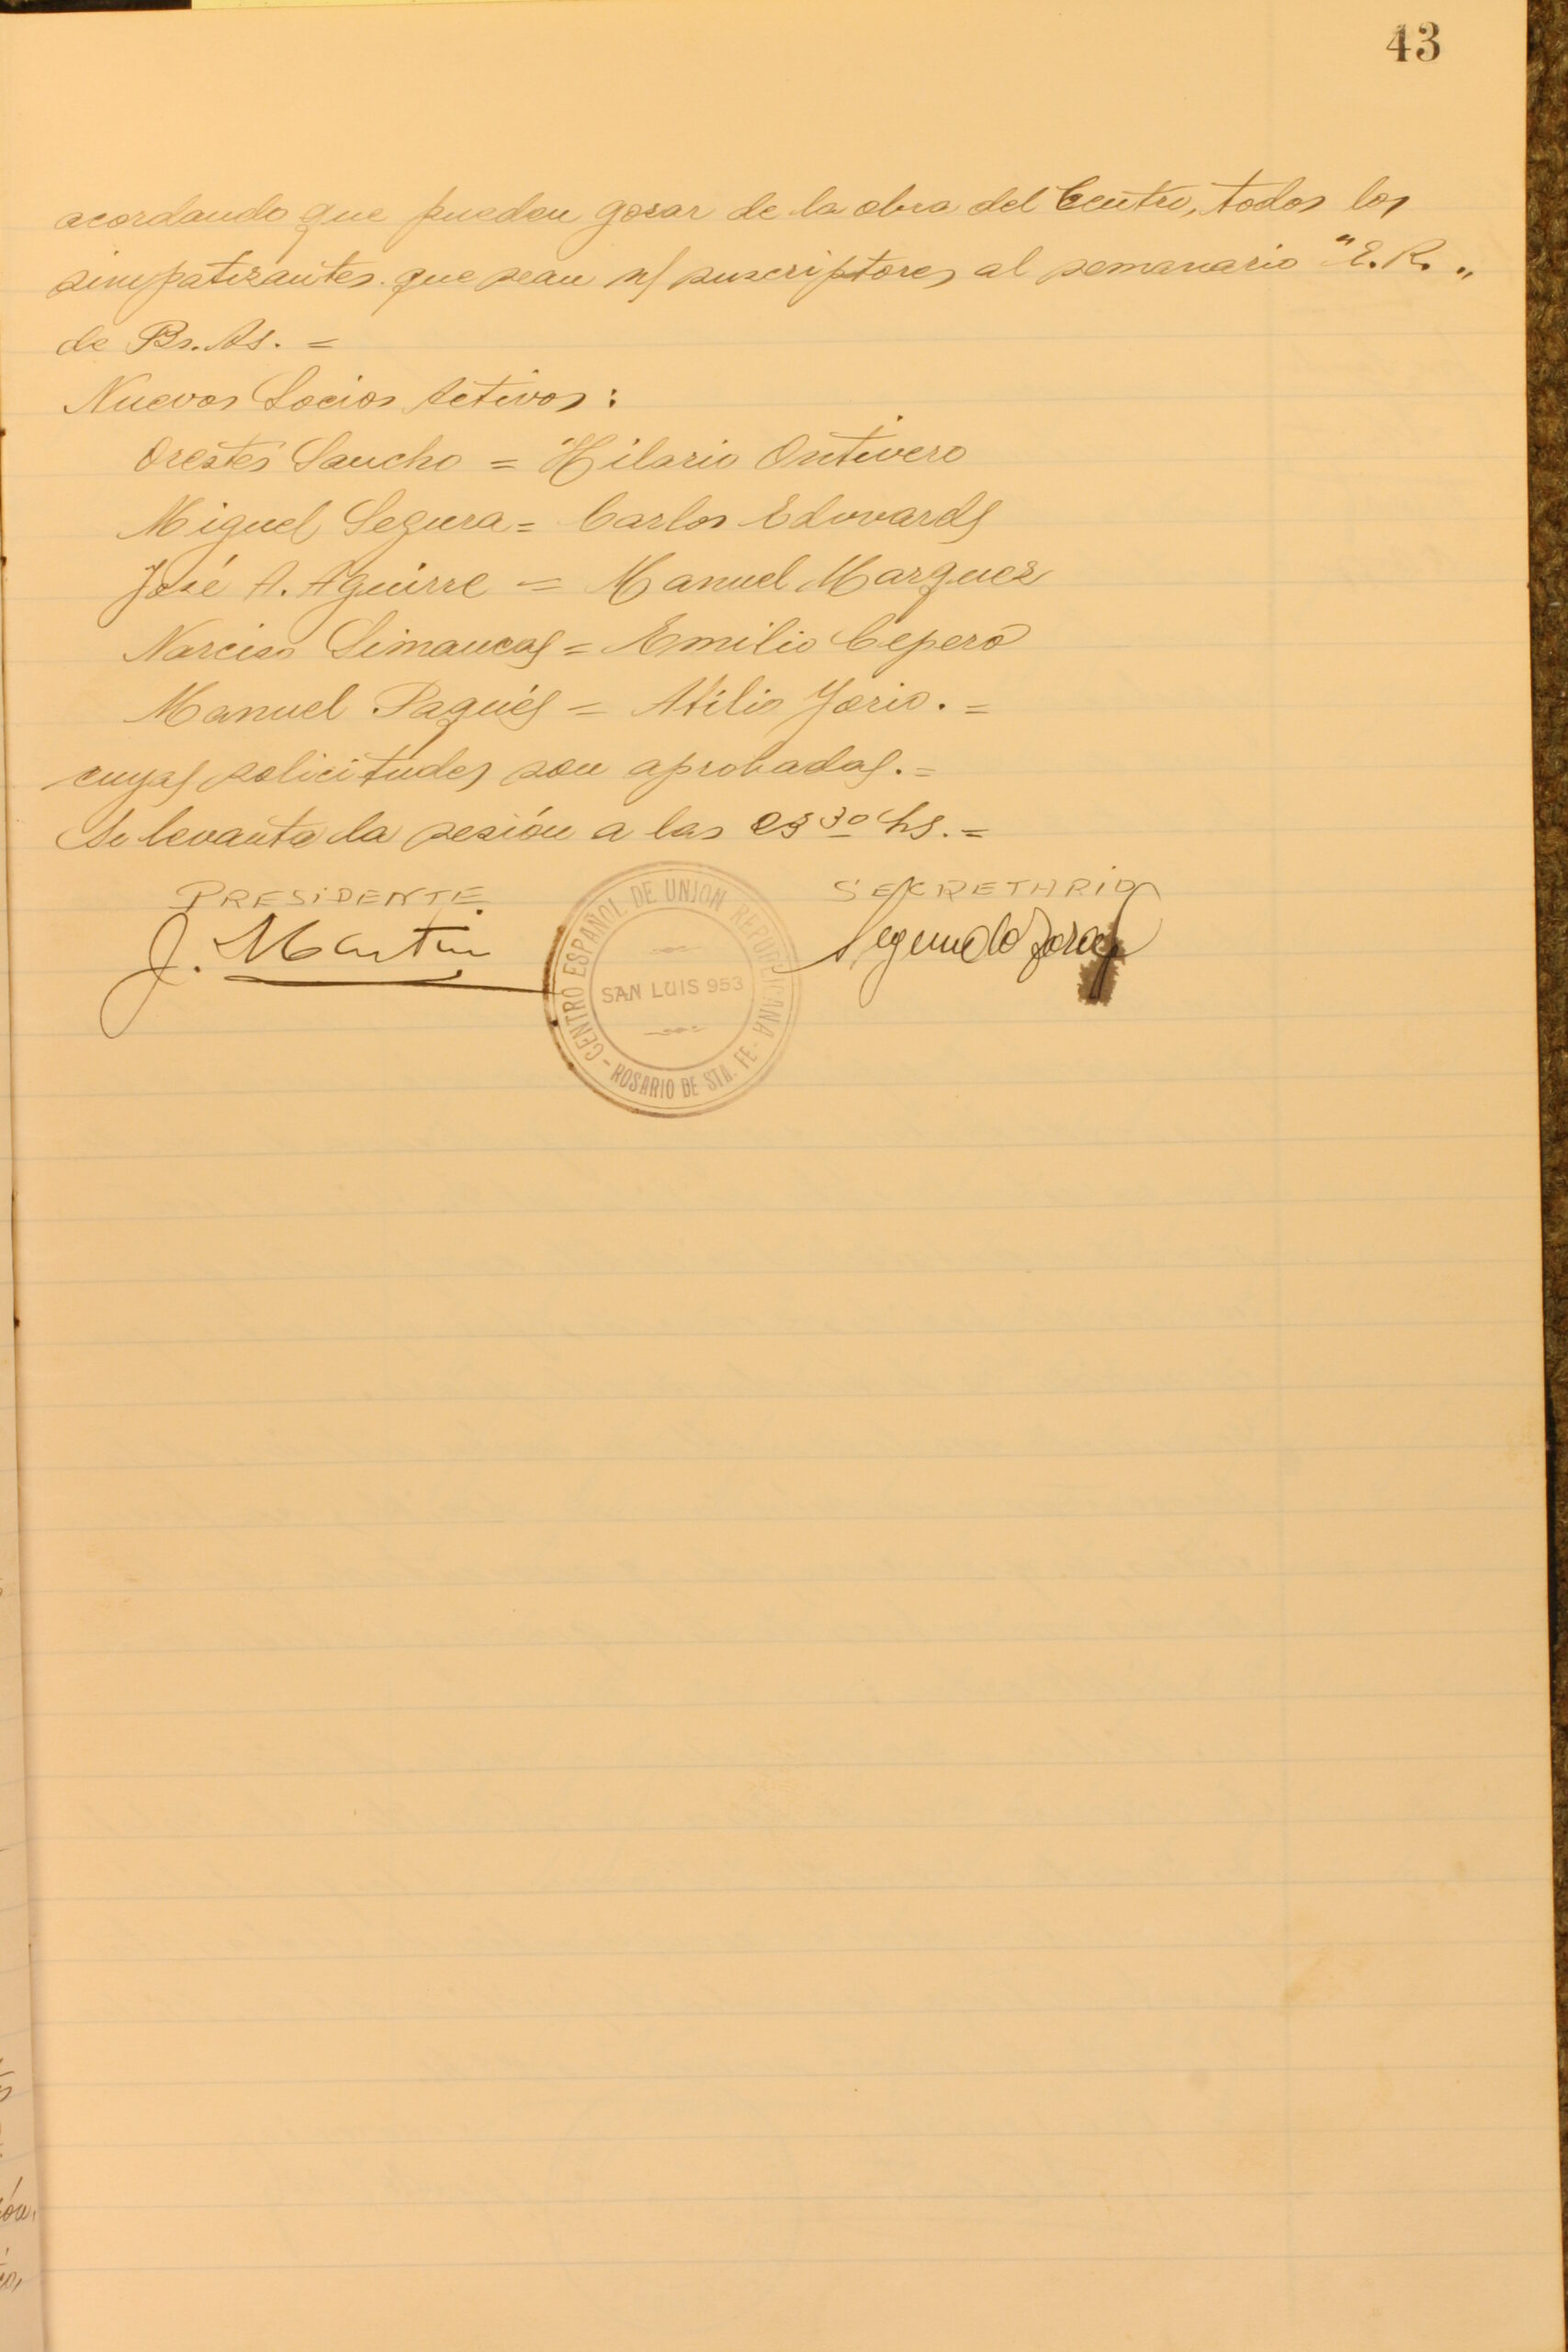 43
acordando que puedan gozar de la obra del Centro, todos los
simpatizantes que sean n/ suscriptores al semanario "E.R."
de Bs. As. =
Nuevos Socios Activos:
Orestes Sancho = Hilario Ontivero
Miguel Segura = Carlos Edwards
José A. Aguirre = Manuel Marquez
Narciso Simancas = Emilio Cepero
Manuel Pagués = Atilio Yorio. =
cuyas solicitudes son aprobadas. =
Se levanta la sesión a las 23 30 hs. =
PRESIDENTE SECRETARIO
J. Martin Segundo
CENTRO ESPAÑOL DE UNION REPUBLICANA
SAN LUIS 953
- ROSARIO DE STA. FE -